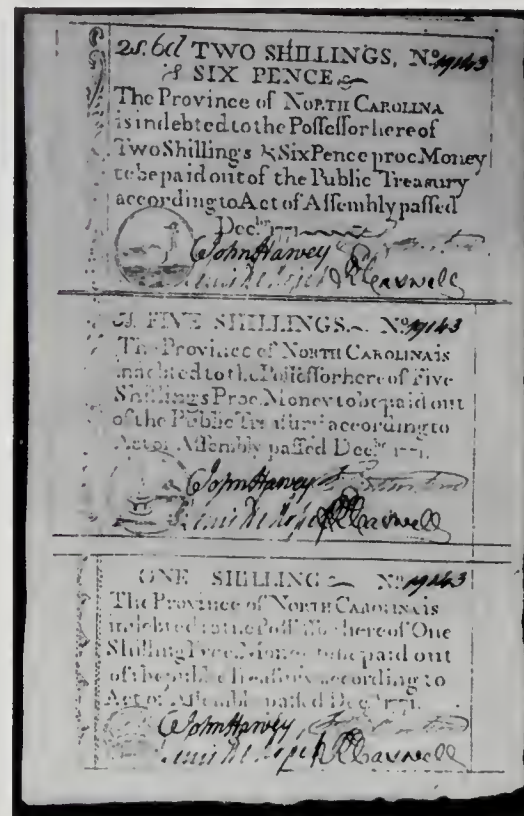 2s. 6d TWO SHILLINGS, No. 19143
& SIX PENCE
The Province of NORTH CAROLINA
is indebted to the Poſſeſſor hereof
Two Shillings & Six Pence proc Money
to be paid out of the Public Treasury
according to Act of Aſſembly paſſed
Decbr. 1771
John Harvey
Lewis De Roſset R Caswell
5s. FIVE SHILLINGS. No. 19143
The Province of NORTH CAROLINA is
indebted to the Poſſeſſor hereof Five
Shillings Proc. Money to be paid out
of the Public Treaſury according to
Act of Aſſembly paſſed Decbr. 1771.
John Harvey
Lewis De Roſset R Caswell
ONE SHILLING No. 19143
The Province of NORTH CAROLINA is
indebted to the Poſſeſſor hereof One
Shilling Proc. Money to be paid out
of the public Treaſury according to
Act of Aſſembly paſſed Decbr. 1771.
John Harvey,
Lewis De Roſset R Caswell